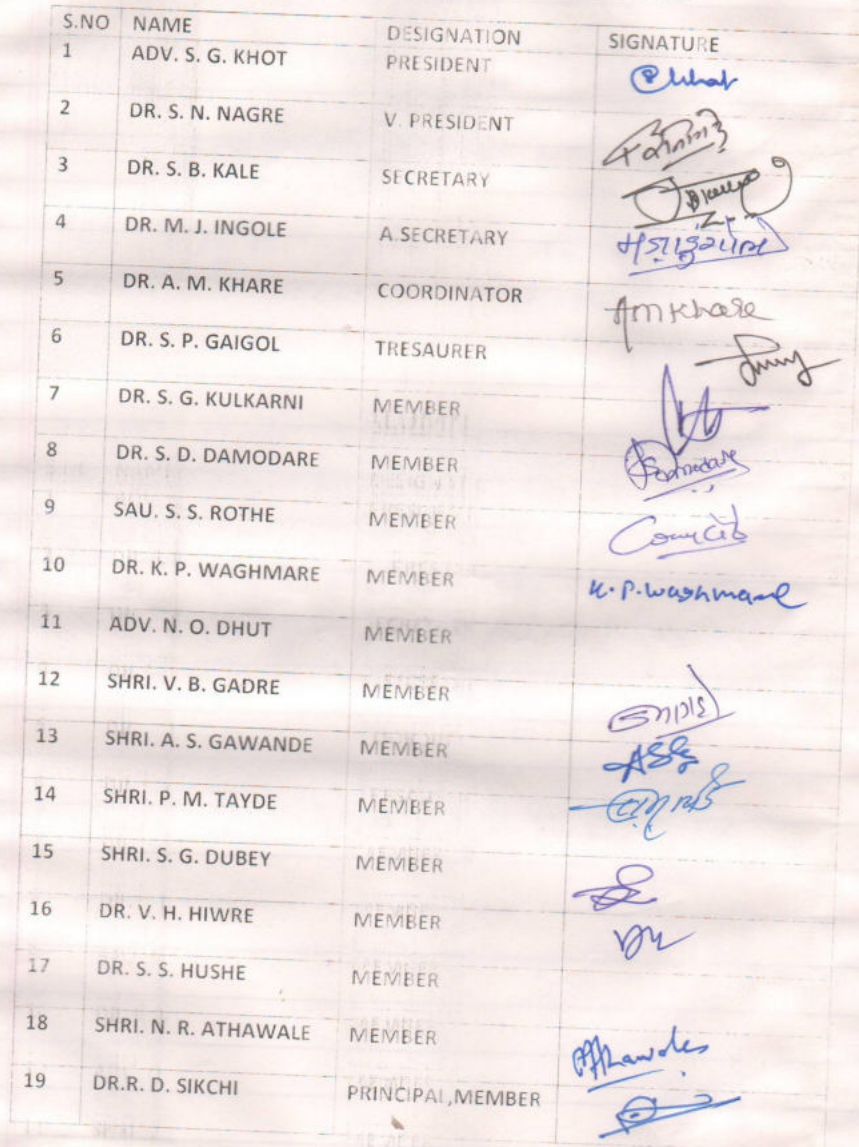 S.NO NAME DESIGNATION SIGNATURE
1 ADV. S. G. KHOT PRESIDENT
2 DR. S. N. NAGRE V. PRESIDENT
3 DR. S. B. KALE SECRETARY
4 DR. M. J. INGOLE A.SECRETARY
5 DR. A. M. KHARE COORDINATOR AmKhare
6 DR. S. P. GAIGOL TRESAURER
7 DR. S. G. KULKARNI MEMBER
8 DR. S. D. DAMODARE MEMBER
9 SAU. S. S. ROTHE MEMBER
10 DR. K. P. WAGHMARE MEMBER K. P. Waghmare
11 ADV. N. O. DHUT MEMBER
12 SHRI. V. B. GADRE MEMBER
13 SHRI. A. S. GAWANDE MEMBER
14 SHRI. P. M. TAYDE MEMBER
15 SHRI. S. G. DUBEY MEMBER
16 DR. V. H. HIWRE MEMBER
17 DR. S. S. HUSHE MEMBER
18 SHRI. N. R. ATHAWALE MEMBER
19 DR.R. D. SIKCHI PRINCIPAL,MEMBER